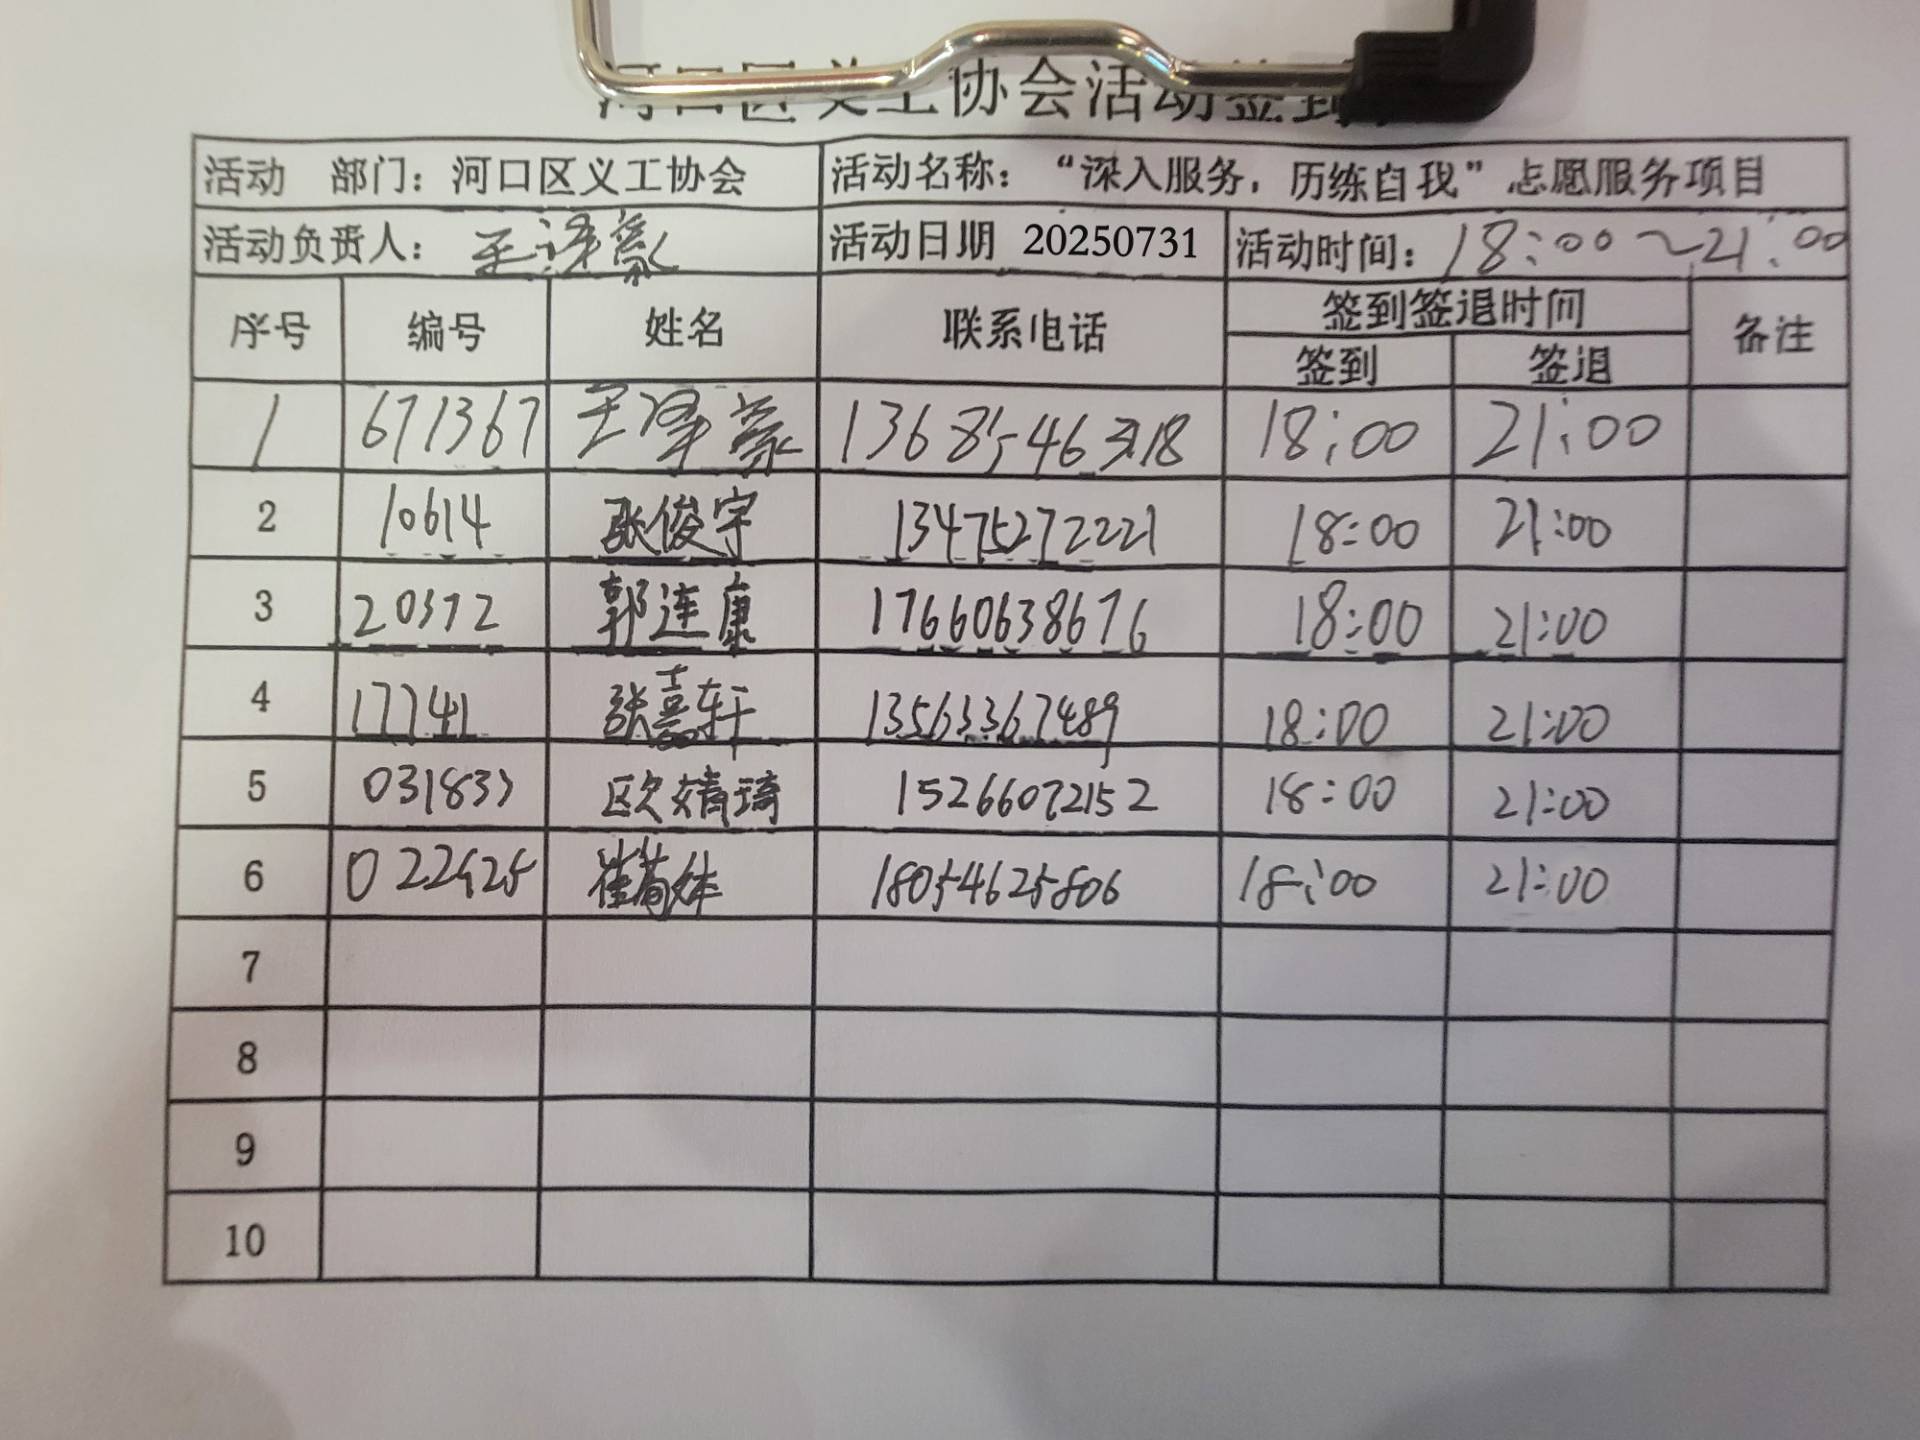 河口区义工协会活动签到
活动 部门：河口区义工协会 活动名称：“深入服务，历练自我”志愿服务项目
活动负责人：王泽豪 活动日期 20250731 活动时间：18:00~21:00
序号 编号 姓名 联系电话 签到签退时间 备注
签到 签退
1 671367 王泽豪 18:00 21:00
2 10614 张俊宇 13475272221 18:00 21:00
3 20372 郭连康 17660638676 18:00 21:00
4 17741 张嘉轩 13563367489 18:00 21:00
5 031833 欧婧琦 15266072152 18:00 21:00
6 崔 18054625806 18:00 21:00
7
8
9
10